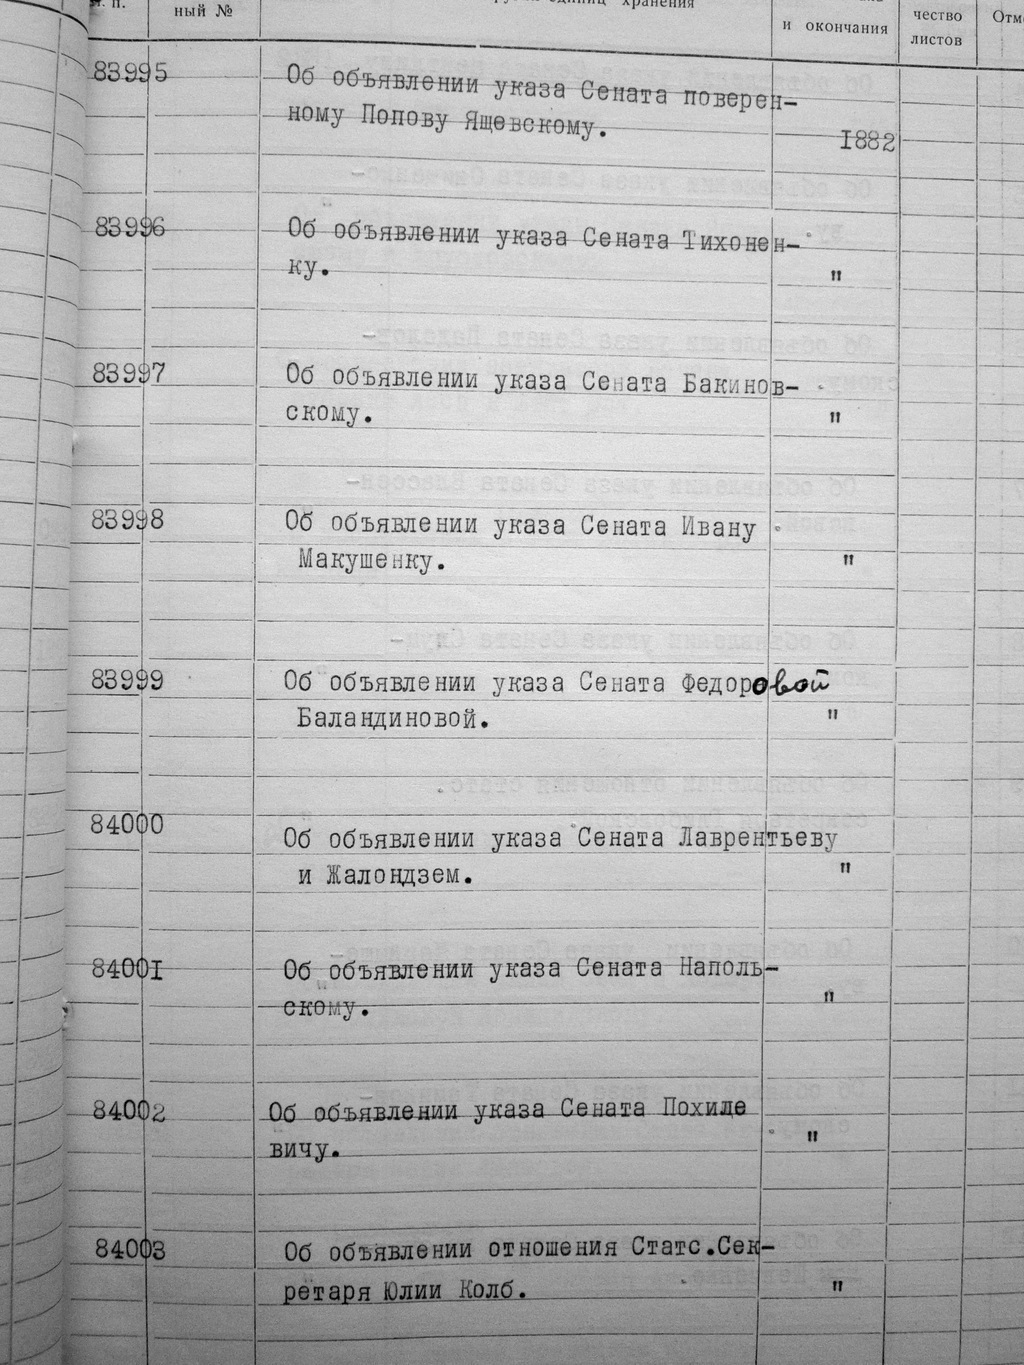 п.
ный № единиц хранения
и окончания
чество
листов
83995 Об объявлении указа Сената поверен-
ному Попову Ящевскому. 1882
83996 Об объявлении указа Сената Тихонен-
ку. "
83997 Об объявлении указа Сената Бакинов-
скому. "
83998 Об объявлении указа Сената Ивану
Макушенку. "
83999 Об объявлении указа Сената Федоровой
Баландиновой. "
84000 Об объявлении указа Сената Лаврентьеву
и Жалондзем. "
84001 Об объявлении указа Сената Наполь-
скому. "
84002 Об объявлении указа Сената Похиле
вичу. "
84003 Об объявлении отношения Статс.Сек-
ретаря Юлии Колб. "